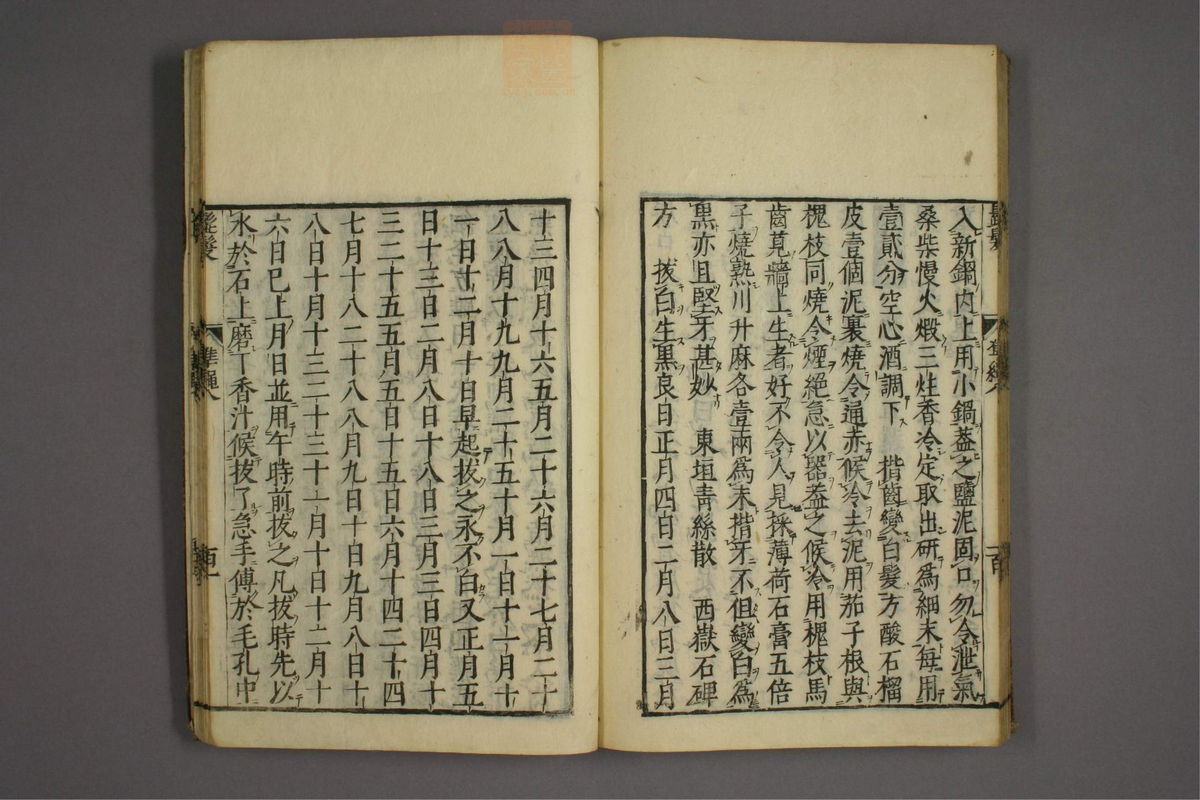 入新鍋内上用小鍋葢之鹽泥固口勿令泄氣
桑柴慢火煅三炷香冷定取出研為細末每用
壹貳分空心酒調下　揩齒變白髮方酸石榴
皮壹個泥裹燒令通赤候冷去泥用茄子根與
槐枝同燒令煙絕急以器葢之候冷用槐枝馬
齒莧牆上生者好不令人見採薄荷石膏五倍
子燒熟川升麻各壹兩為末揩牙不但變白為
黒亦且堅牙甚妙　東垣青絲散　西嶽石碑
方　拔白生黒良日正月四日二月八日三月
十三四月十六五月二十六月二十七月二十
八八月十九九月二十五十月一日十一月十
一日十二月十日早起拔之永不白又正月五
日十三日二月八日十八日三月三日四月十
三二十五五月五日十五日六月十四二十四
七月十八二十八八月九日十日九月八日十
八日十月十三二十三十一月十日十二月十
六日已上月日並用午時前拔之凡拔時先以
水於石上磨丁香汁候拔了急手傅於毛孔中
髭髮
準繩八
百一